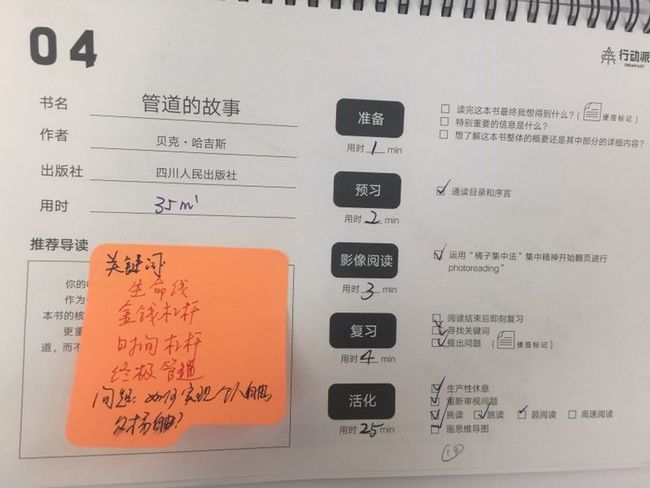 04
行动派
DREAM LIST
书名 管道的故事
作者 贝克·哈吉斯
出版社 四川人民出版社
用时 35m'
推荐导读
你的
作为
本书的核
更重
道，而不
关键词
生命线
金钱杠杆
时间杠杆
终极管道
问题：如何实现个人自由
及
准备
用时 1 min
读完这本书最终我想得到什么？（便签标记）
特别重要的信息是什么？
想了解这本书整体的概要还是其中部分的详细内容？
预习
用时 2 min
通读目录和序言
影像阅读
用时 3 min
运用“橘子集中法”集中精神开始翻页进行
photoreading”
复习
用时 4 min
阅读结束后即刻复习
寻找关键词
提出问题（便签标记）
活化
用时 25 min
生产性休息
重新审视问题
挑读 跳读 超阅读 高速阅读
画思维导图